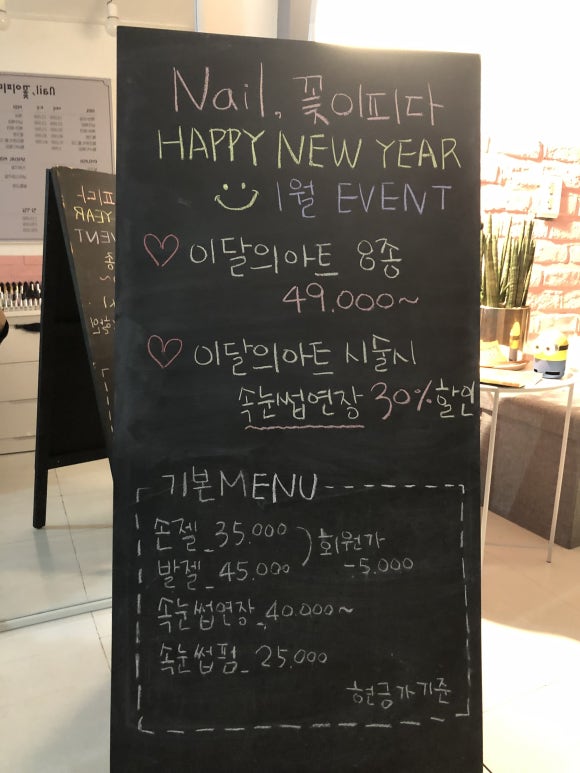 Nail, 꽃이피다
HAPPY NEW YEAR
1월 EVENT
♡ 이달의아트 8종
49.000~
♡ 이달의아트 시술시
속눈썹연장 30% 할인
기본MENU
손젤_35.000
발젤_45.000
회원가
-5.000
속눈썹연장_40.000~
속눈썹펌_25.000
현금가기준